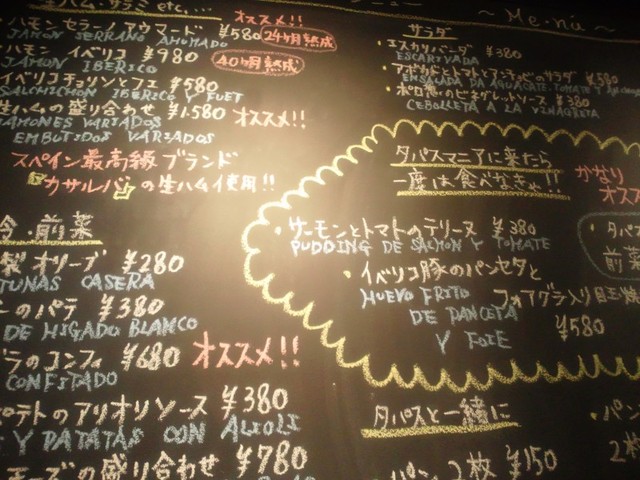 生ハム・サラミ etc,...
オススメ!!
ハモン セラーノ アウマード ¥580 24ヶ月熟成
JAMON SERRANO AHUMADO
ハモン イベリコ ¥980 40ヶ月熟成
JAMON IBERICO
イベリコチョリソとフエ ¥580
SALCHICHON IBERICO Y FUET
生ハムの盛り合わせ ¥1.580 オススメ!!
JAMONES VARIADOS
EMBUTIDOS VARIADOS
スペイン最高級ブランド
『カサルバ』の生ハム使用!!
今・前菜
製オリーブ ¥280
TUNAS CASERA
ーのパテ ¥380
DE HIGADO BLANCO
ラのコンフィ ¥680 オススメ!!
CONFITADO
ポテトのアリオリソース ¥380
E Y PATATAS CON ALIOLI
モーズの盛り合わせ ¥780
ニュー
~ Me·nú ~
サラダ
・エスカリバーダ ¥380
ESCARIVADA
・アボカドとトマトとアンチョビのサラダ ¥580
ENSALADA DE AGUACATE, TOMATE Y
・ポロ葱のビネグレットソース ¥380
CEBOLLETA A LA VINAGRETA
タパスマニアに来たら
一度は食べなきゃ!!
かなり
オス
・サーモンとトマトのテリーヌ ¥380
PUDDING DE SALMON Y TOMATE
・イベリコ豚のパンセタと
フォアグラ入り目玉焼
HUEVO FRITO
DE PANCETA
Y FOIE
¥580
・タパ
前菜
タパスと一緒に
・パン 2枚 ¥150
・パン
2枚